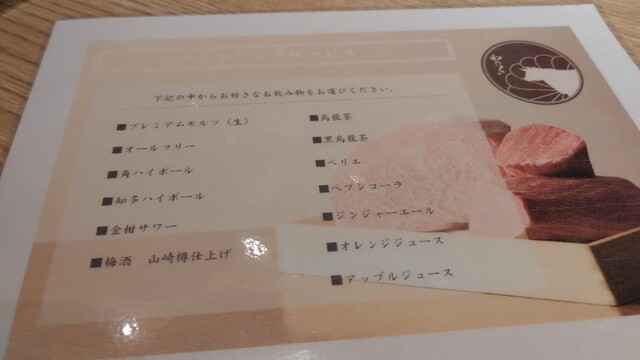 ドリンクサービス
下記の中からお好きなお飲み物をお選びください。
■プレミアムモルツ（生）
■オールフリー
■角ハイボール
■知多ハイボール
■金柑サワー
■梅酒　山崎樽仕上げ
■烏龍茶
■黒烏龍茶
■ペリエ
■ペプシコーラ
■ジンジャーエール
■オレンジジュース
■アップルジュース